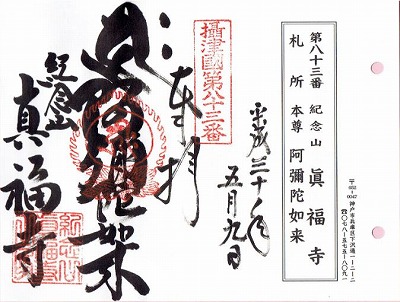 第八十三番 紀念山 眞福寺
札所 本尊 阿彌陀如来
〒652-0047
神戸市兵庫区下沢通一-二-二
☎〇七八-五七五-八〇九一
攝津國第八十三番
奉拝
平成二十年
五月九日
阿彌陀如来
紀念山
真福寺